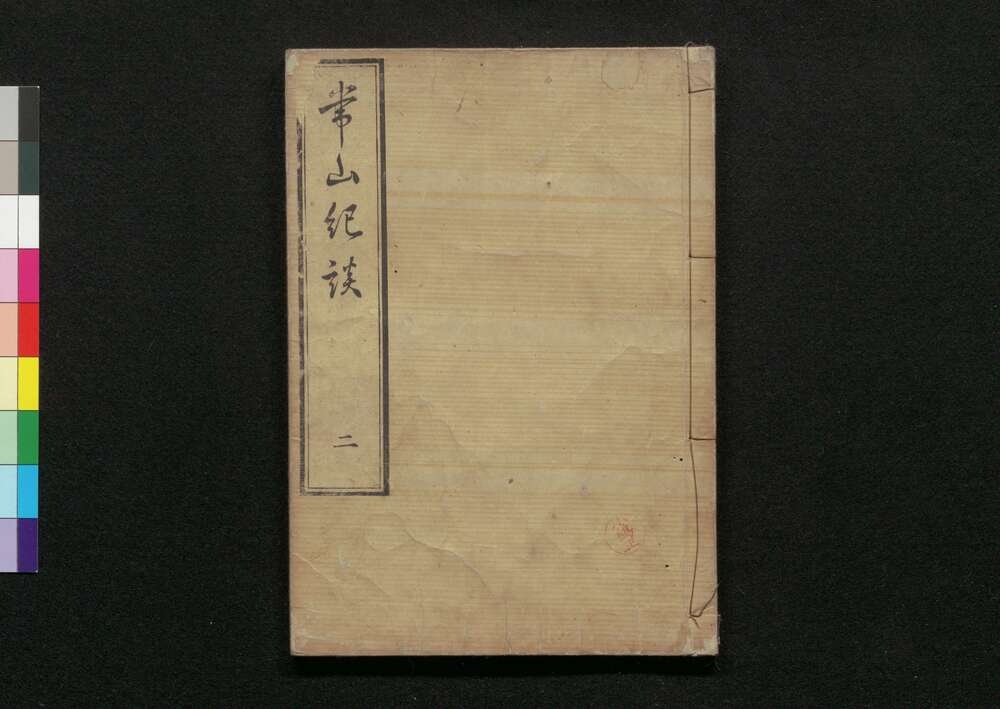 常山紀談
二